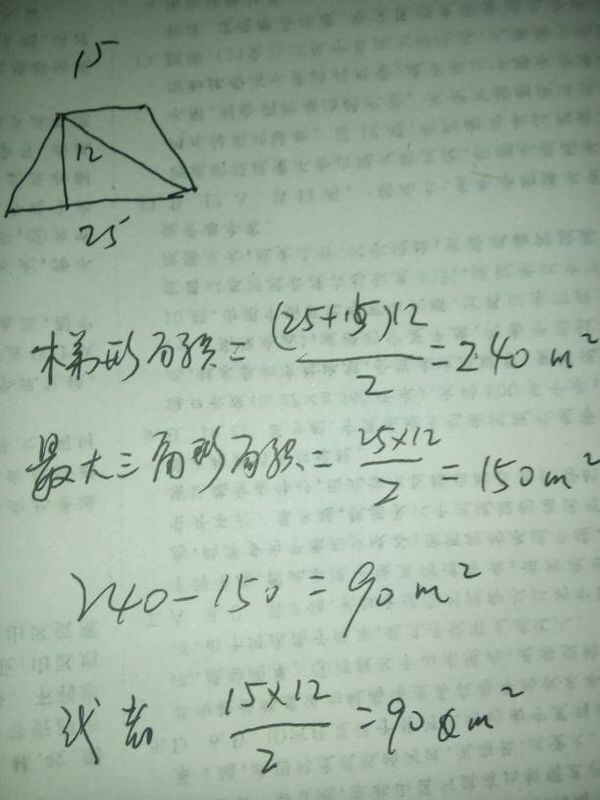 15
12
25
梯形面积=(25+15)12/2=240m²
最大三角形面积=25×12/2=150m²
240-150=90m²
或者 15×12/2=90m²